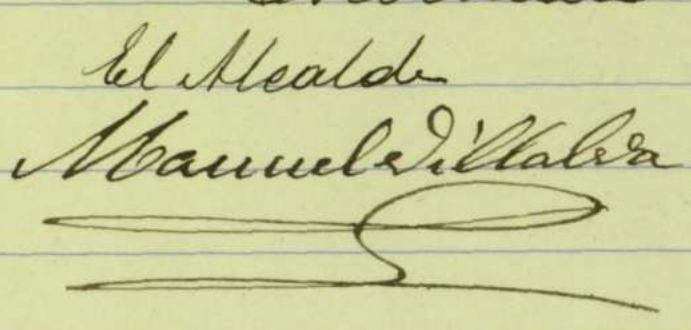 El Alcalde
Manuel Villalba